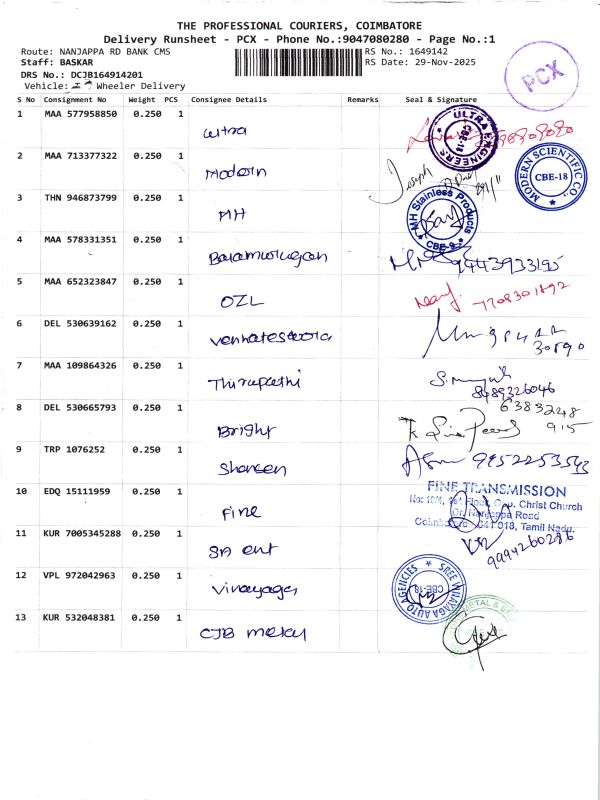 THE PROFESSIONAL COURIERS, COIMBATORE
Delivery Runsheet - PCX - Phone No.:9047080280 - Page No.:1
Route: NANJAPPA RD BANK CMS
RS No.: 1649142
Staff: BASKAR
RS Date: 29-Nov-2025
DRS No.: DCJB164914201
Vehicle: Wheeler Delivery
PCX
S No Consignment No Weight PCS Consignee Details Remarks Seal & Signature
1 MAA 577958850 0.250 1 Ultra
ULTRA ENGINEERS CBE-18
2 MAA 713377322 0.250 1 Modern
Joseph
MODERN SCIENTIFIC CO., CBE-18
3 THN 946873799 0.250 1 MH
MH Stainless Products CBE-9
4 MAA 578331351 0.250 1 Balamurugan
9443933195
5 MAA 652323847 0.250 1 OZL
7708301892
6 DEL 530639162 0.250 1 Venkateswara
30590
7 MAA 109864326 0.250 1 Thirupathi
8489326046
8 DEL 530665793 0.250 1 Bright
6383248
915
9 TRP 1076252 0.250 1 Shareen
9952253543
10 EDQ 15111959 0.250 1 Fine
FINE TRANSMISSION
1st Floor, Opp. Christ Church
Dr. Nanjappa Road
Coimbatore - 641 018, Tamil Nadu.
9994260286
11 KUR 7005345288 0.250 1 SA ent
12 VPL 972042963 0.250 1 Vinayaga
SREE VINAYAGA AUTO AGENCIES CBE-18
13 KUR 532048381 0.250 1 CJB metal
METAL &